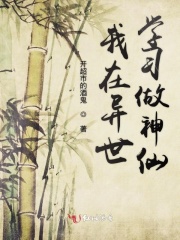 学习做神仙
我在异世
开超市的酒鬼
◎
著